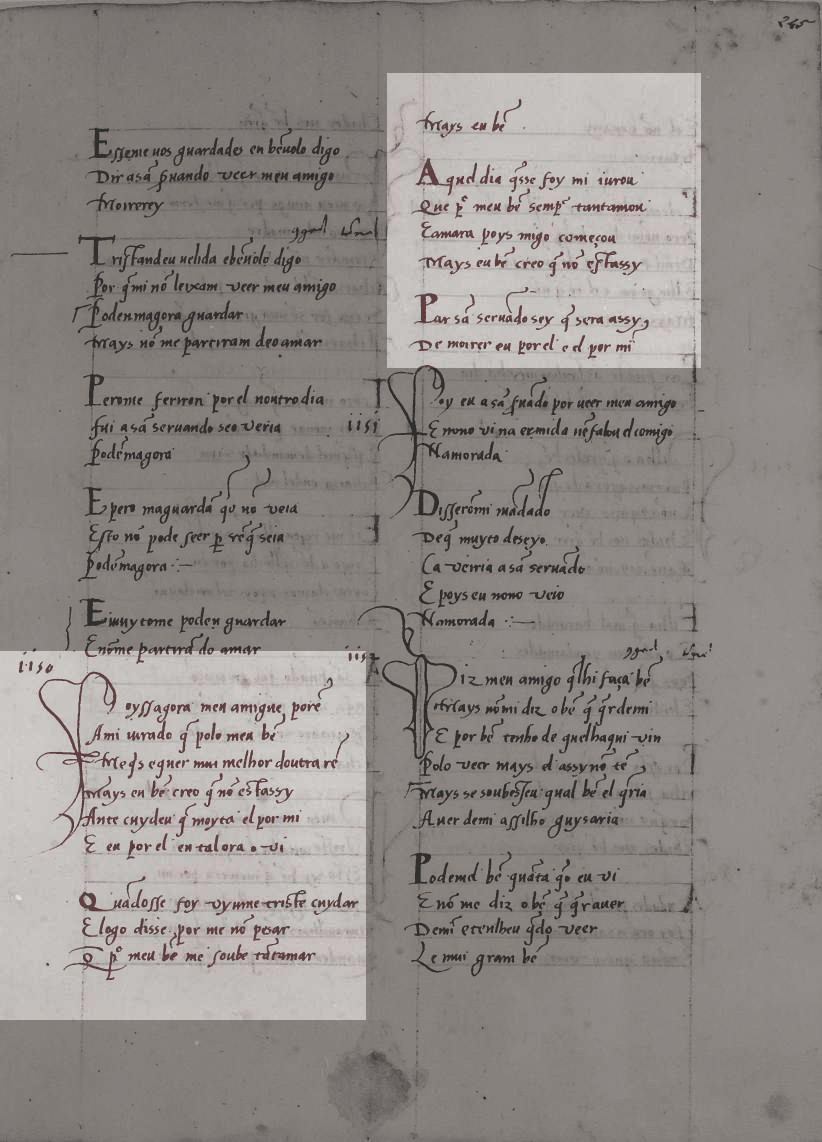 245
Esseme uos guardades en bẽ uolo digo
Dir asã s̃uando ueer meu amigo
Moirerey
Tristandeu uelida ebẽ uolo digo
Por q̃ mi nõ leixam ueer meu amigo
Podenmagora guardar
Mays nõ me partiram deo amar
Perome feriron por el noutro dia
fui a sã seruando seo ueria
Podẽmagora
E pero maguardã q̃ o nõ ueia
Esto nõ pode seer
Podẽmagora
E muytome poden guardar
E nõme partirã do amar
1150
Poyssagora meu amigue porẽ
Ami iurado q̃ polo meu bẽ
Me q̃s e quer mui melhor doutra rẽ
Mays eu bẽ creo q̃ nõ estassy
Ante cuydeu q̃ moyra el por mi
E eu por el en tal ora o ui
Quãdosse foy uyume triste cuydar
E logo disse por me nõ pesar
Q̃ p̃ meu bẽ me soube tãtamar
Mays eu bẽ
A quel dia q̃sse foy mi iurou
Que p̃ meu bẽ semp̃ tantamou
E amara poys migo começou
Mays eu bẽ creo q̃ nõ estassy
Par sã seruãdo sey q̃ sera assy
De moirer eu por el e el por mi
1151
Foy eu a sã s̃uãdo por ueer meu amigo
E nono ui na ermida nẽ falou el comigo
Namorada
Disserõmi mãdado
Deq̃ muyto deseyo
Ca uerria a sã seruãdo
E poys eu nono ueio
Namorada
1152
Diz meu amigo q̃lhi faça bẽ
Mays nõmi diz o bẽ q̃ q̃r demi
E por bẽ tenho de quelhaqui uin
Polo ueer mays el assy nõ tẽ
Mays se soubesseu qual bẽ el q̃ria
Auer demi assilho guysaria
Podemel bẽ quãta q̃o eu ui
E nõ me diz o bẽ q̃ q̃r auer
Demĩ e tenlheu q̃do ueer
Le mui gram bẽ